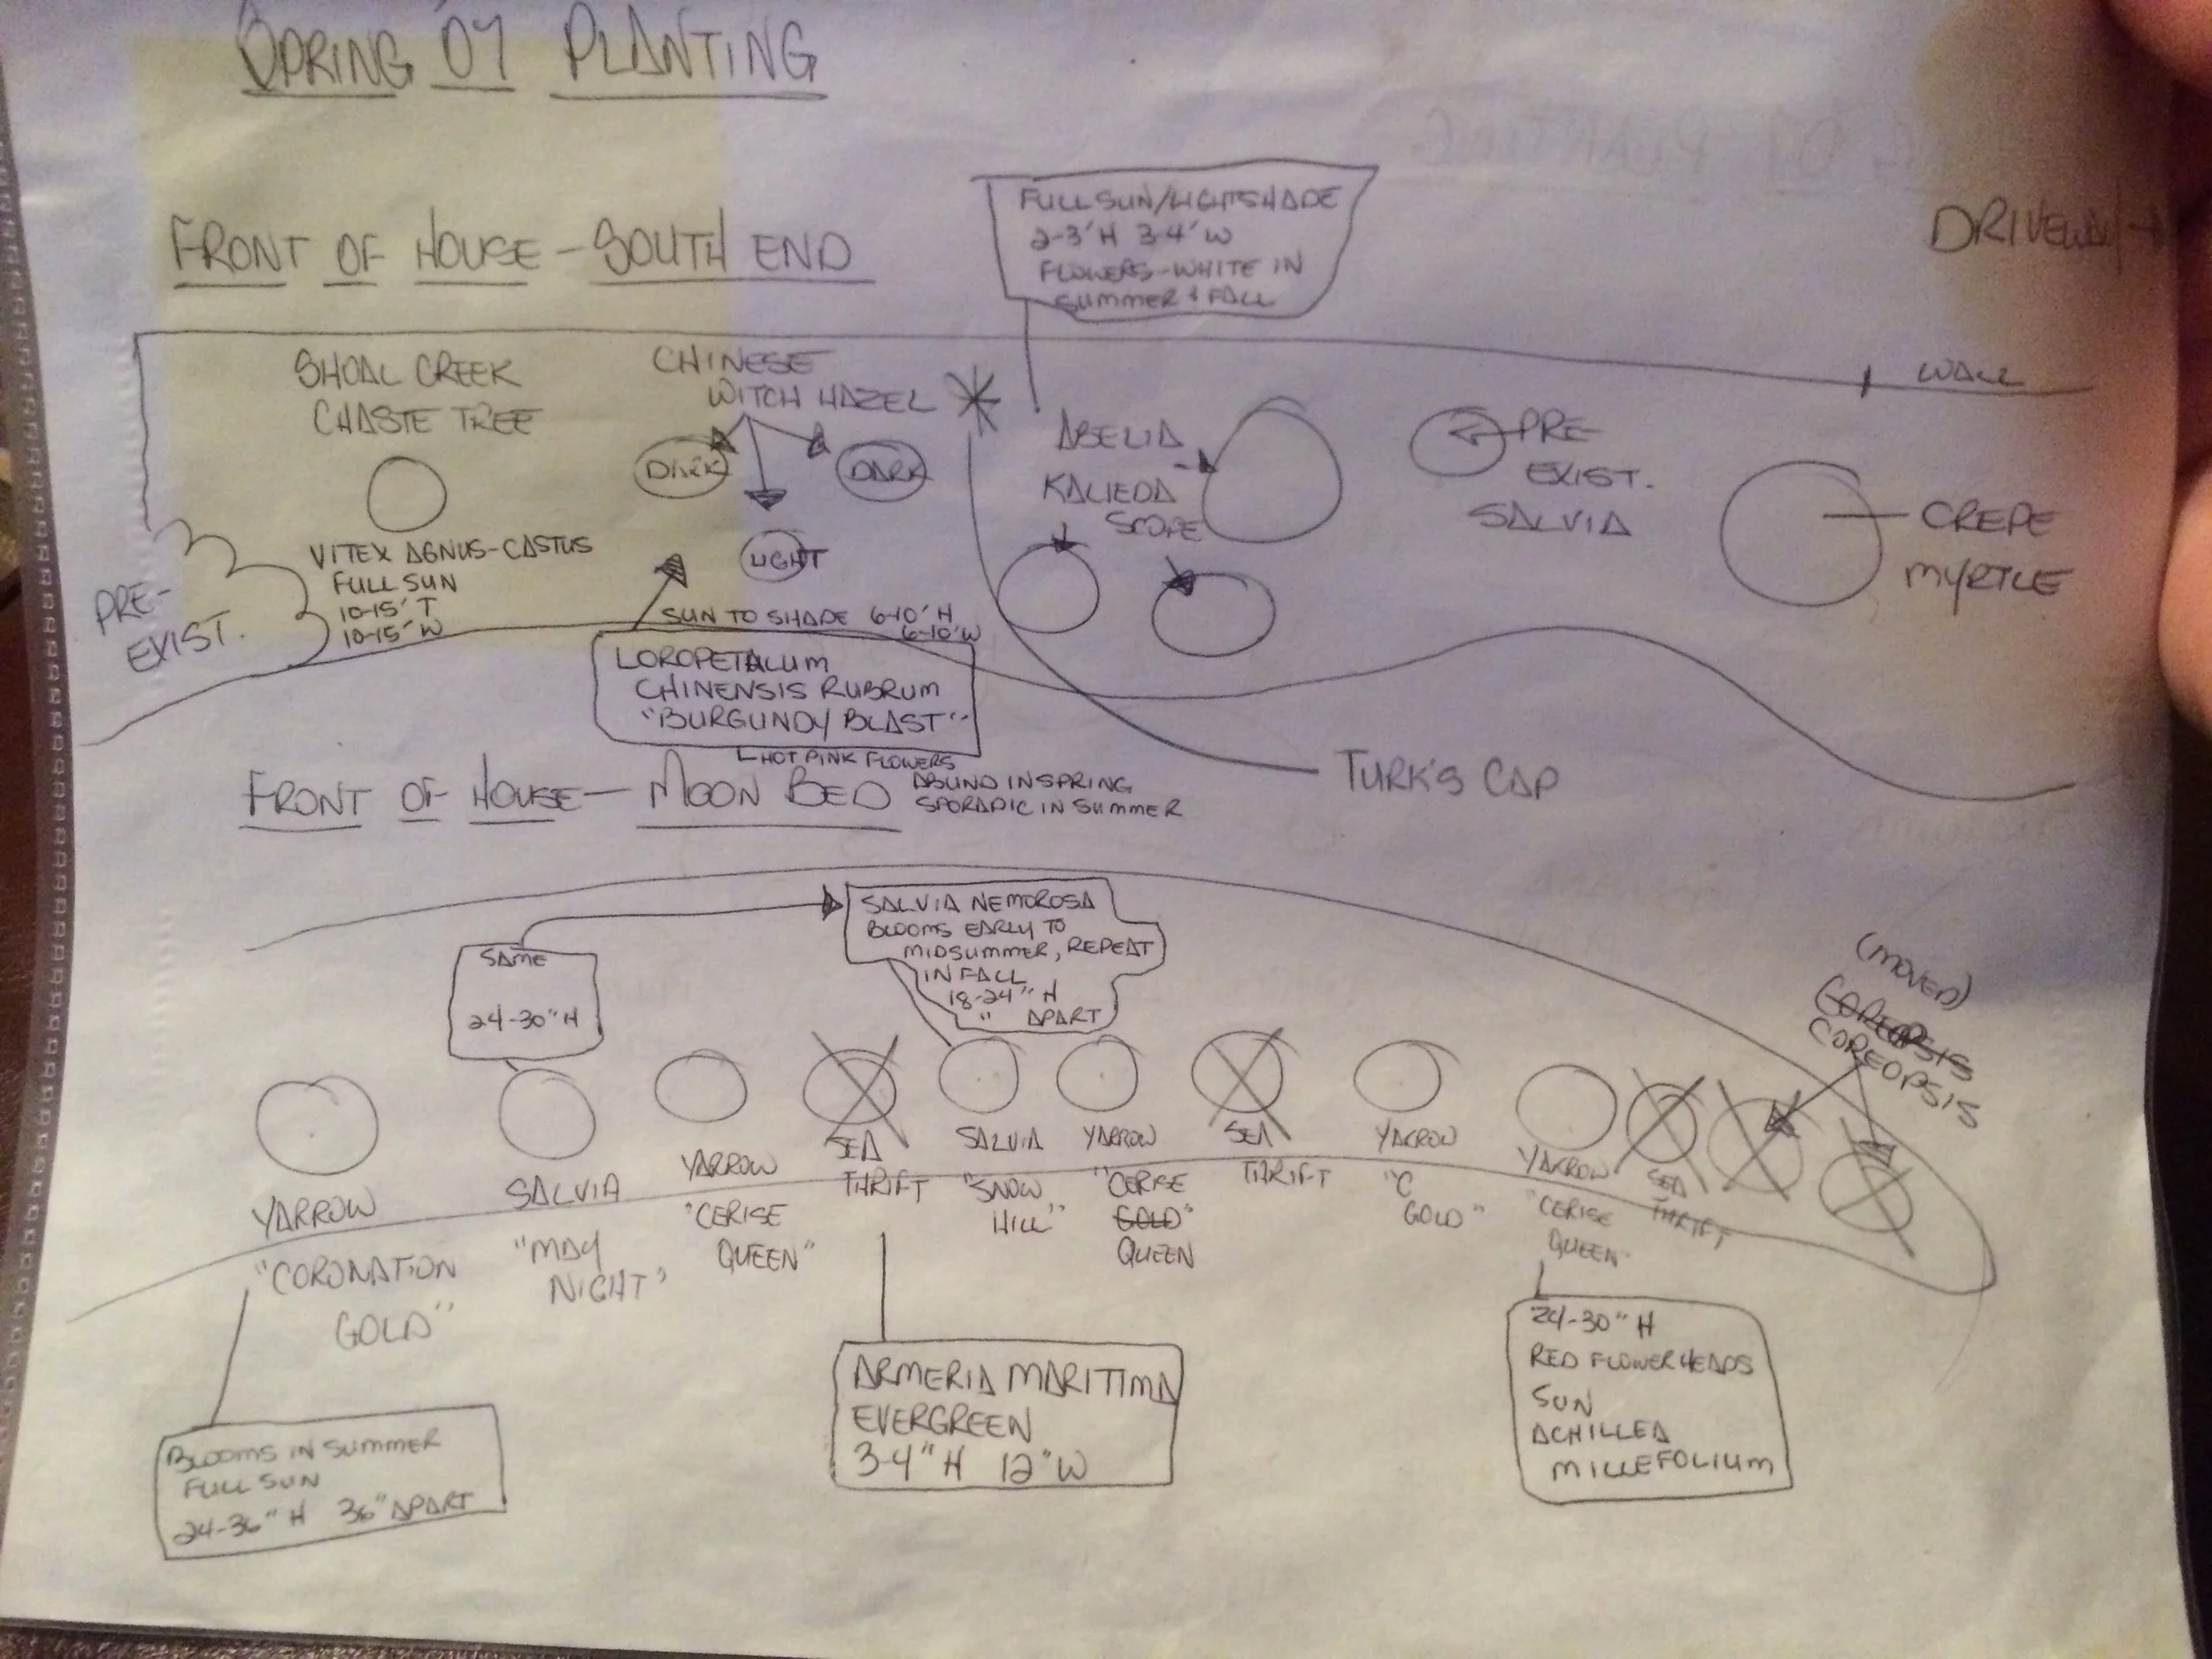 SPRING 07 PLANTING
FRONT OF HOUSE - SOUTH END
FULL SUN/LIGHT SHADE
2-3' H 3-4' W
FLOWERS - WHITE IN
SUMMER & FALL
DRIVEWAY →
WALL
SHOAL CREEK
CHASTE TREE
VITEX AGNUS-CASTUS
FULL SUN
10-15' T
10-15' W
PRE-
EXIST.
CHINESE
WITCH HAZEL
DARK
DARK
LIGHT
SUN TO SHADE 6-10' H
6-10' W
LOROPETALUM
CHINENSIS RUBRUM
"BURGUNDY BLAST"
HOT PINK FLOWERS
ABUND IN SPRING
SPORADIC IN SUMMER
ABELIA
KALIEDA
SCOPE
PRE
EXIST.
SALVIA
CREPE
MYRTLE
TURK'S CAP
FRONT OF HOUSE - MOON BED
SAME
24-30" H
SALVIA NEMOROSA
BLOOMS EARLY TO
MIDSUMMER, REPEAT
IN FALL
18-24" H
" APART
(MOVED)
COREOPSIS
COREOPSIS
YARROW
"CORONATION
GOLD"
SALVIA
"MAY
NIGHT"
YARROW
"CERISE
QUEEN"
SEA
THRIFT
SALVIA
"SNOW
HILL"
YARROW
"CERISE
GOLD"
QUEEN
SEA
THRIFT
YARROW
"C
GOLD"
YARROW
"CERISE
QUEEN"
SEA
THRIFT
BLOOMS IN SUMMER
FULL SUN
24-36" H 36" APART
ARMERIA MARITIMA
EVERGREEN
3-4" H 12" W
24-30" H
RED FLOWERHEADS
SUN
ACHILLEA
MILLEFOLIUM